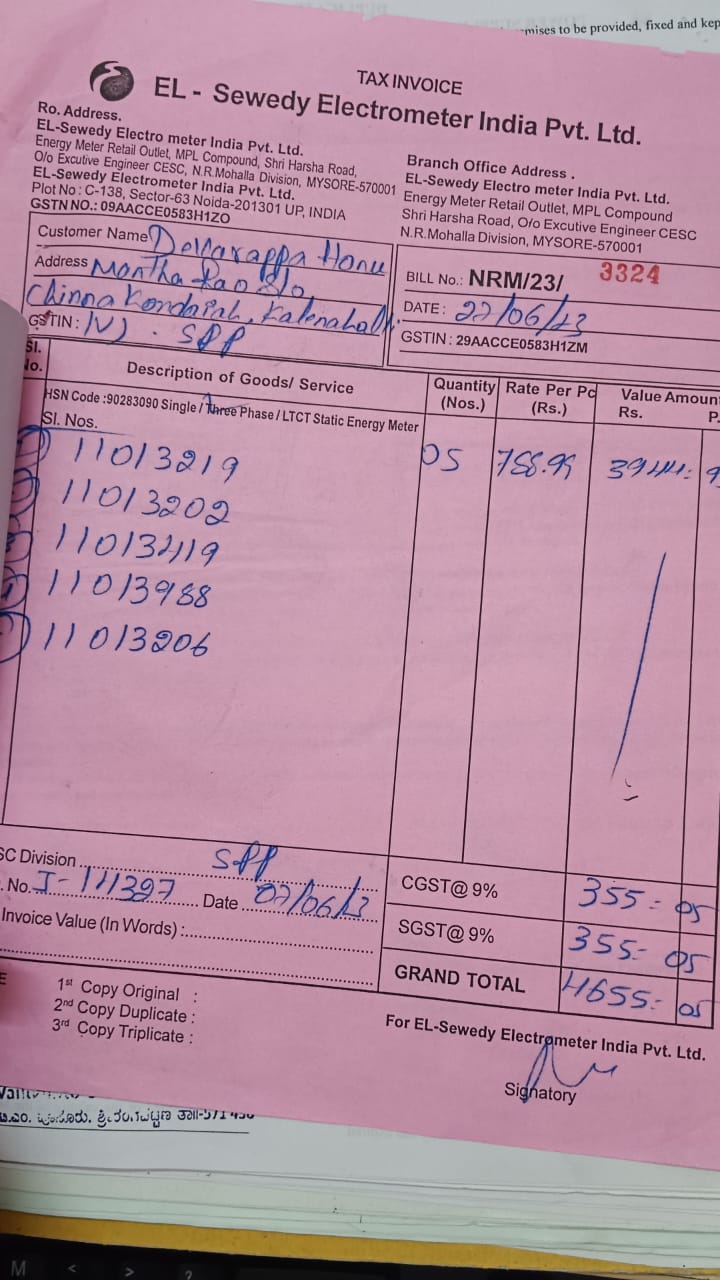 -mises to be provided, fixed and kep
TAX INVOICE
EL - Sewedy Electrometer India Pvt. Ltd.
Ro. Address.
EL-Sewedy Electro meter India Pvt. Ltd.
Energy Meter Retail Outlet, MPL Compound, Shri Harsha Road,
O/o Excutive Engineer CESC, N.R.Mohalla Division, MYSORE-570001
EL-Sewedy Electrometer India Pvt. Ltd.
Plot No : C-138, Sector-63 Noida-201301 UP, INDIA
GSTN NO.: 09AACCE0583H1ZO
Branch Office Address .
EL-Sewedy Electro meter India Pvt. Ltd.
Energy Meter Retail Outlet, MPL Compound
Shri Harsha Road, O/o Excutive Engineer CESC
N.R.Mohalla Division, MYSORE-570001
Customer Name Devarappa Honu
Address Mantha Rao S/o
Chinna Kondaiah, Kalenahalli.
GSTIN : (V) . SPP
BILL No.: NRM/23/ 3324
DATE : 22/06/23
GSTIN : 29AACCE0583H1ZM
Sl. No. Description of Goods/ Service Quantity (Nos.) Rate Per Pc (Rs.) Value Amoun Rs. P.
HSN Code :90283090 Single / Three Phase / LTCT Static Energy Meter
Sl. Nos.
1) 11013219 05 788.99 3944: 9
2) 11013202
3) 11013419
4) 11013988
5) 11013206
SC Division SPP
. No. J-141397 Date 07/06/23
Invoice Value (In Words) :
CGST@ 9% 355 = 05
SGST@ 9% 355 = 05
GRAND TOTAL 4655 = 05
E
1st Copy Original :
2nd Copy Duplicate :
3rd Copy Triplicate :
For EL-Sewedy Electrometer India Pvt. Ltd.
Signatory
M < > ?